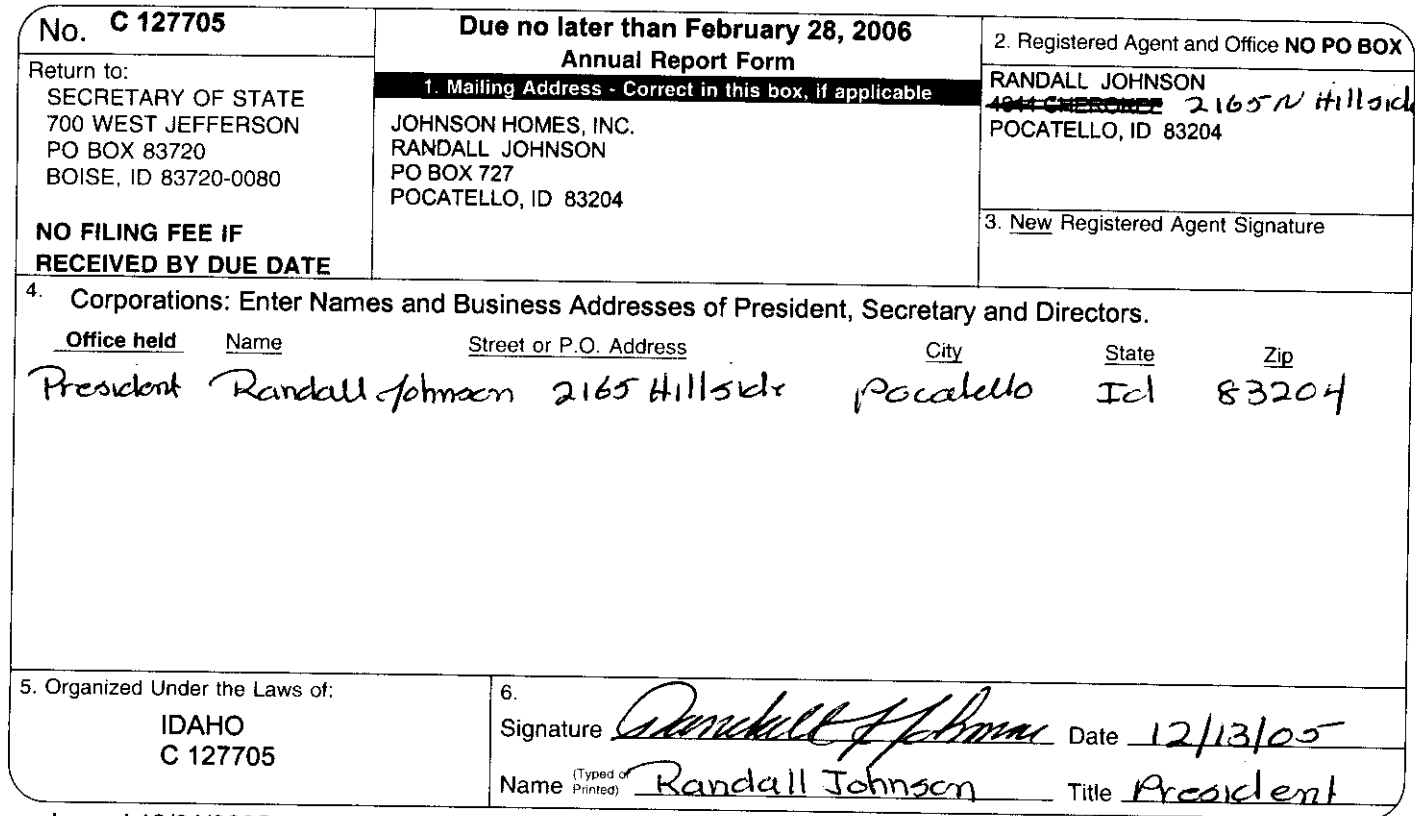 No. C 127705
Return to:
SECRETARY OF STATE
700 WEST JEFFERSON
PO BOX 83720
BOISE, ID 83720-0080
NO FILING FEE IF
RECEIVED BY DUE DATE
Due no later than February 28, 2006
Annual Report Form
1. Mailing Address - Correct in this box, if applicable
JOHNSON HOMES, INC.
RANDALL JOHNSON
PO BOX 727
POCATELLO, ID 83204
2. Registered Agent and Office NO PO BOX
RANDALL JOHNSON
CHEROKEE 2165 N Hillside
POCATELLO, ID 83204
3. New Registered Agent Signature
4. Corporations: Enter Names and Business Addresses of President, Secretary and Directors.
Office held Name Street or P.O. Address City State Zip
President Randall Johnson 2165 Hillside Pocatello Id 83204
5. Organized Under the Laws of:
IDAHO
C 127705
6.
Signature Randall J Johnson Date 12/13/05
Name (Typed or Printed) Randall Johnson Title President